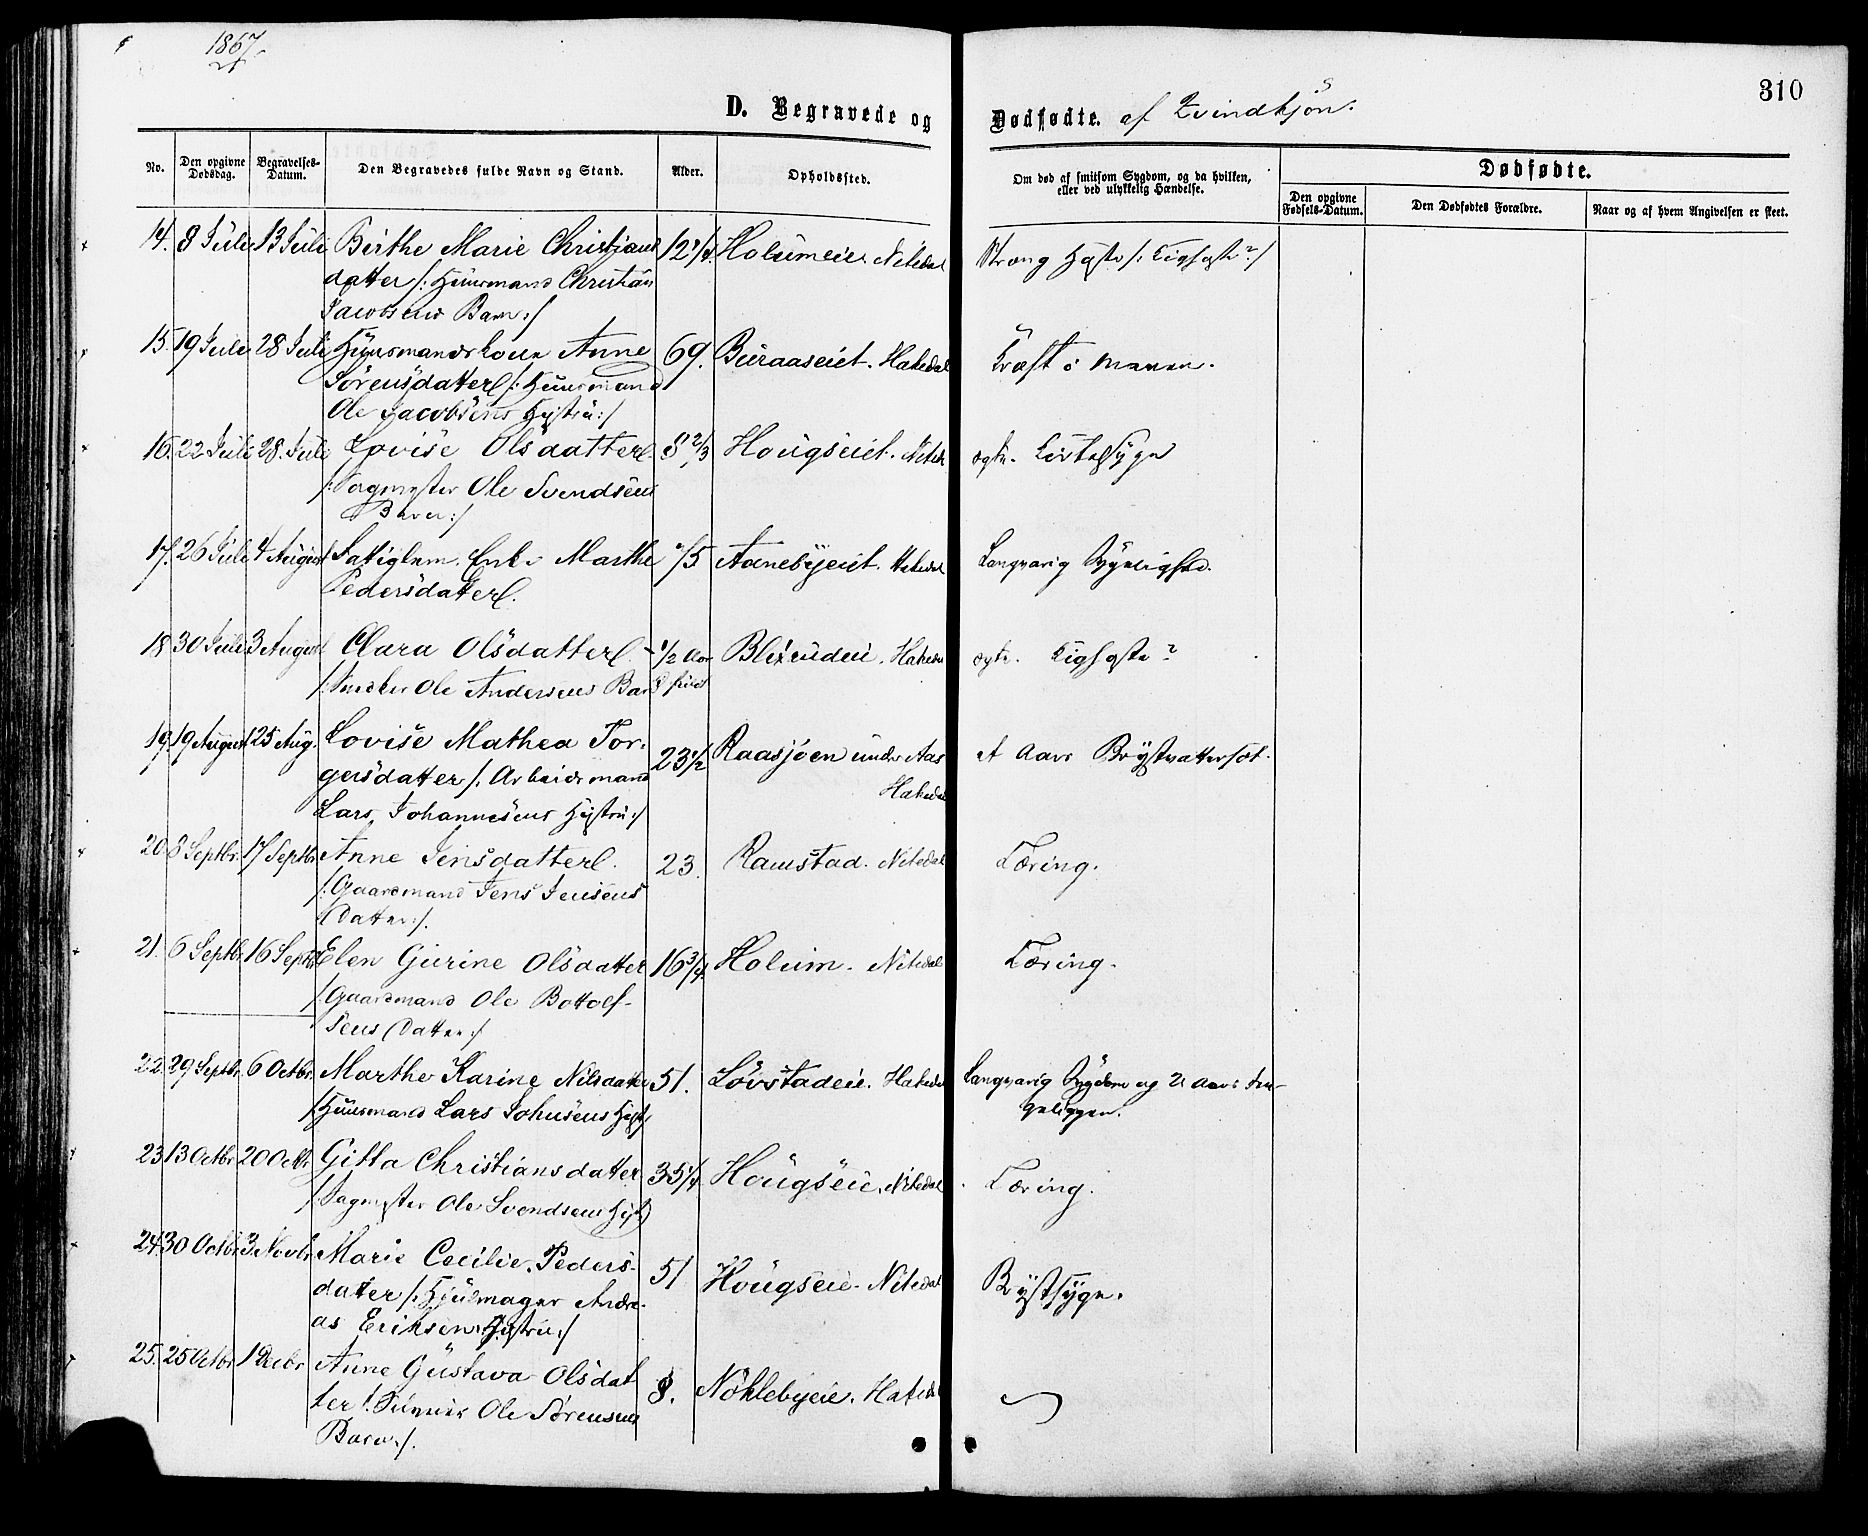 1867
310
D. Begravede og Dødfødte. af Qvindkjön.
No.
Den opgivne Dødsdag.
Begravelses-Datum.
Den Begravedes fulde Navn og Stand.
Alder.
Opholdssted.
Om død af smitsom Sygdom, og da hvilken,
eller ved ulykkelig Hændelse.
Dødfødte.
Den opgivne Fødsels-Datum.
Den Dødfødtes Forældre.
Naar og af hvem Angivelsen er skeet.
14. 8 Juli 13 Juli Birthe Marie Christians 12 1/4. Holumeie. Nitedal Streng Hoste /: Kighoste? /
datter /: Huusmand Christian
Jacobsens Barn :/
15. 19 Juli 28 Juli Huusmandskone Anne 69. Buraaseiet. Hakedal Kræft i Maven.
Sörensdatter /: Huusmand
Ole Jacobsens Hustru :/
16. 22 Juli 28. Juli Lovise Olsdatter 8 2/3 Hougseiet. Nitedal Kirtelsyge
/: Sagmester Ole Svendsens
Barn :/
17. 26 Juli 4 August Fattiglem. Enke Marthe 75 Aanebyeiet. Hakedal Langvarig Sygelighed.
Pedersdatter.
18 30 Juli 3 August Clara Olsdatter 1/2 Blixrudeie. Hakedal Kighoste?
/: Snedker Ole Andersens Barn
19. 19 August 25 Aug. Lovise Mathea Tor- 23 1/2 Raasjöen under Aas et Aars Brystvattersot.
gersdatter /: Arbeidsmand Hakedal
Lars Johannesens Hustru :/
20 8 Septbr. 17 Septbr. Anne Jensdatter. 23. Ramstad. Nitedal Tæring.
/: Gaardmand Jens Jensens
Datter :/.
21. 6 Septbr. 16 Septbr. Elen Gurine Olsdatter 16 3/4 Holum. Nitedal Tæring.
/: Gaardmand Ole Bottolf-
sens Datter :/
22. 29 Septbr. 6 Octbr. Marthe Karine Nilsdatter 51. Lövstadeie. Hakedal Langvarig Sygdom og 2 Aars Sen-
/: Huusmand Lars Johnsens Hustru geliggen.
23 13 Octbr. 20 Octbr. Gitta Christiansdatter 35 1/4 Hougseie. Nitedal Tæring.
/: Sagmester Ole Svendsens Hustru
24. 30 Octbr. 3 Novbr. Marie Cecilie Peders- 51 Hougseie. Nitedal Brystsyge.
datter /: Hjulmager Andre-
as Eriksens Hustru :/
25. 25 Octbr. 1 Decbr. Anne Gustava Olsdat 8. Nöklebyeie. Hakedal
ter /: Ole Sörensens
Barn :/.